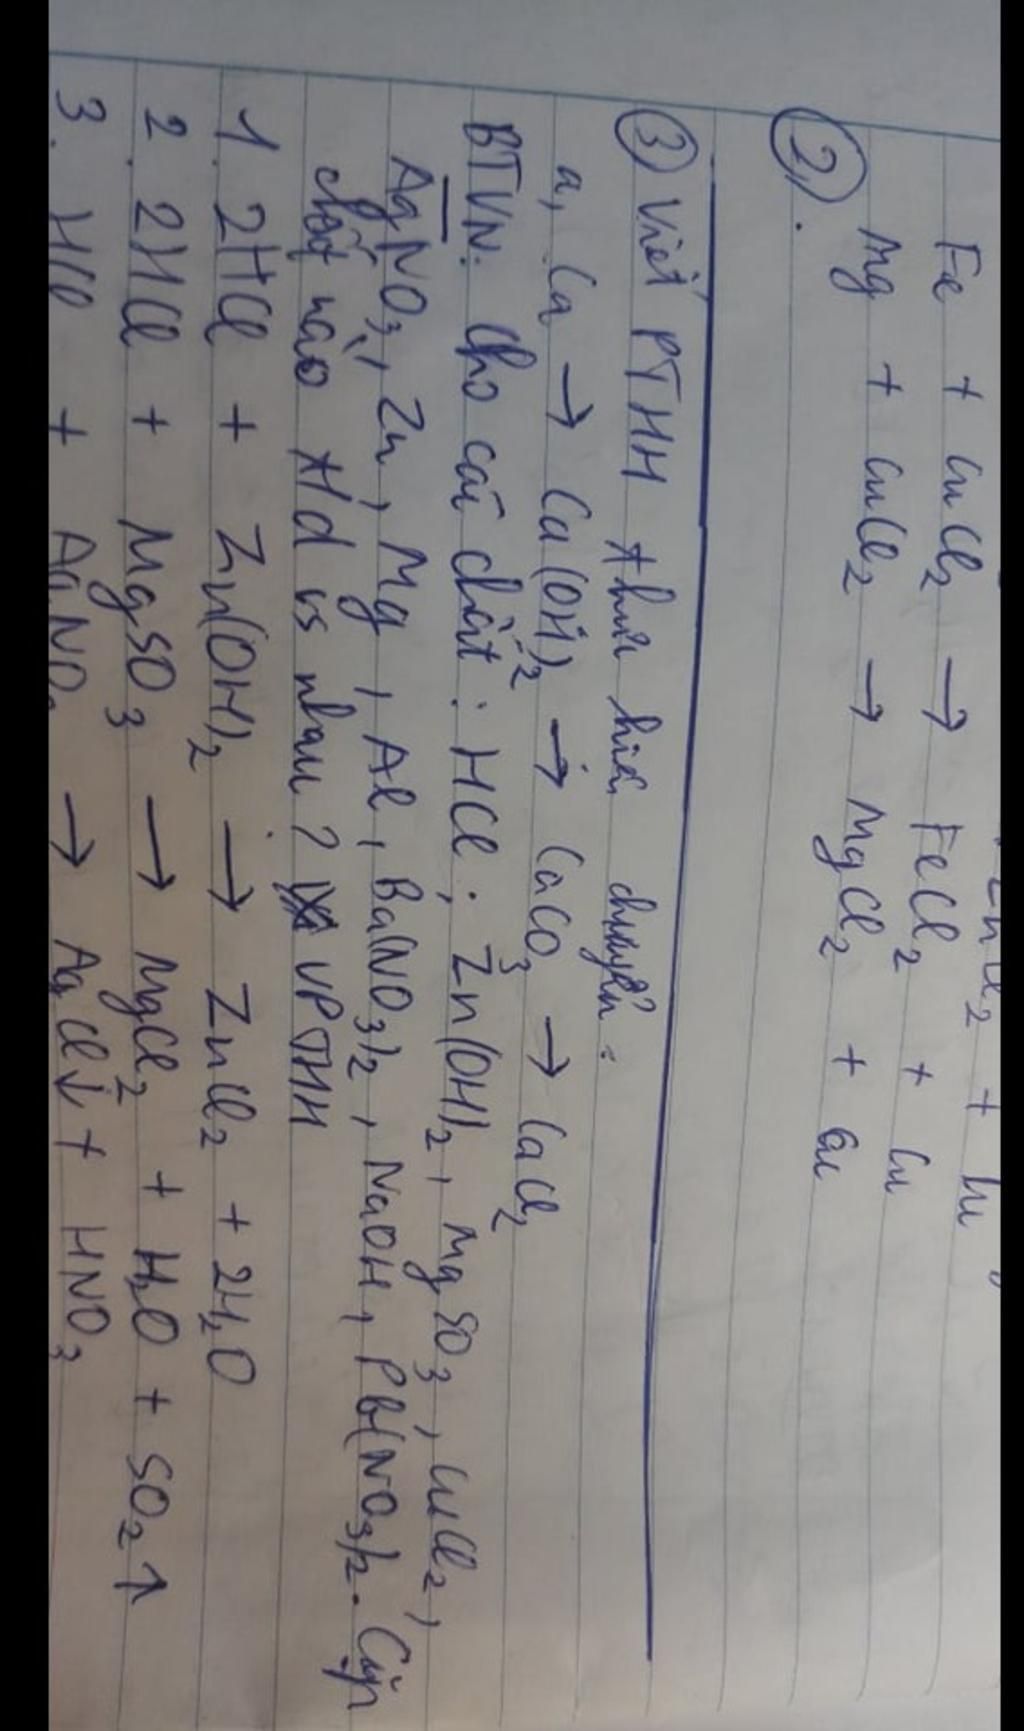 ZnCl₂ + Cu
Fe + CuCl₂ → FeCl₂ + Cu
Mg + CuCl₂ → MgCl₂ + Cu
2).
3) Viết PTHH thực hiện chuyển:
a, Ca → Ca(OH)₂ → CaCO₃ → CaCl₂
BTVN: Cho các chất: HCl; Zn(OH)₂, MgSO₃, CuCl₂,
AgNO₃, Zn, Mg, Al, Ba(NO₃)₂, NaOH, Pb(NO₃)₂. Cặp
chất nào t/d vs nhau? VPTHH
1. 2HCl + Zn(OH)₂ → ZnCl₂ + 2H₂O
2. 2HCl + MgSO₃ → MgCl₂ + H₂O + SO₂↑
3. HCl + AgNO₃ → AgCl↓ + HNO₃